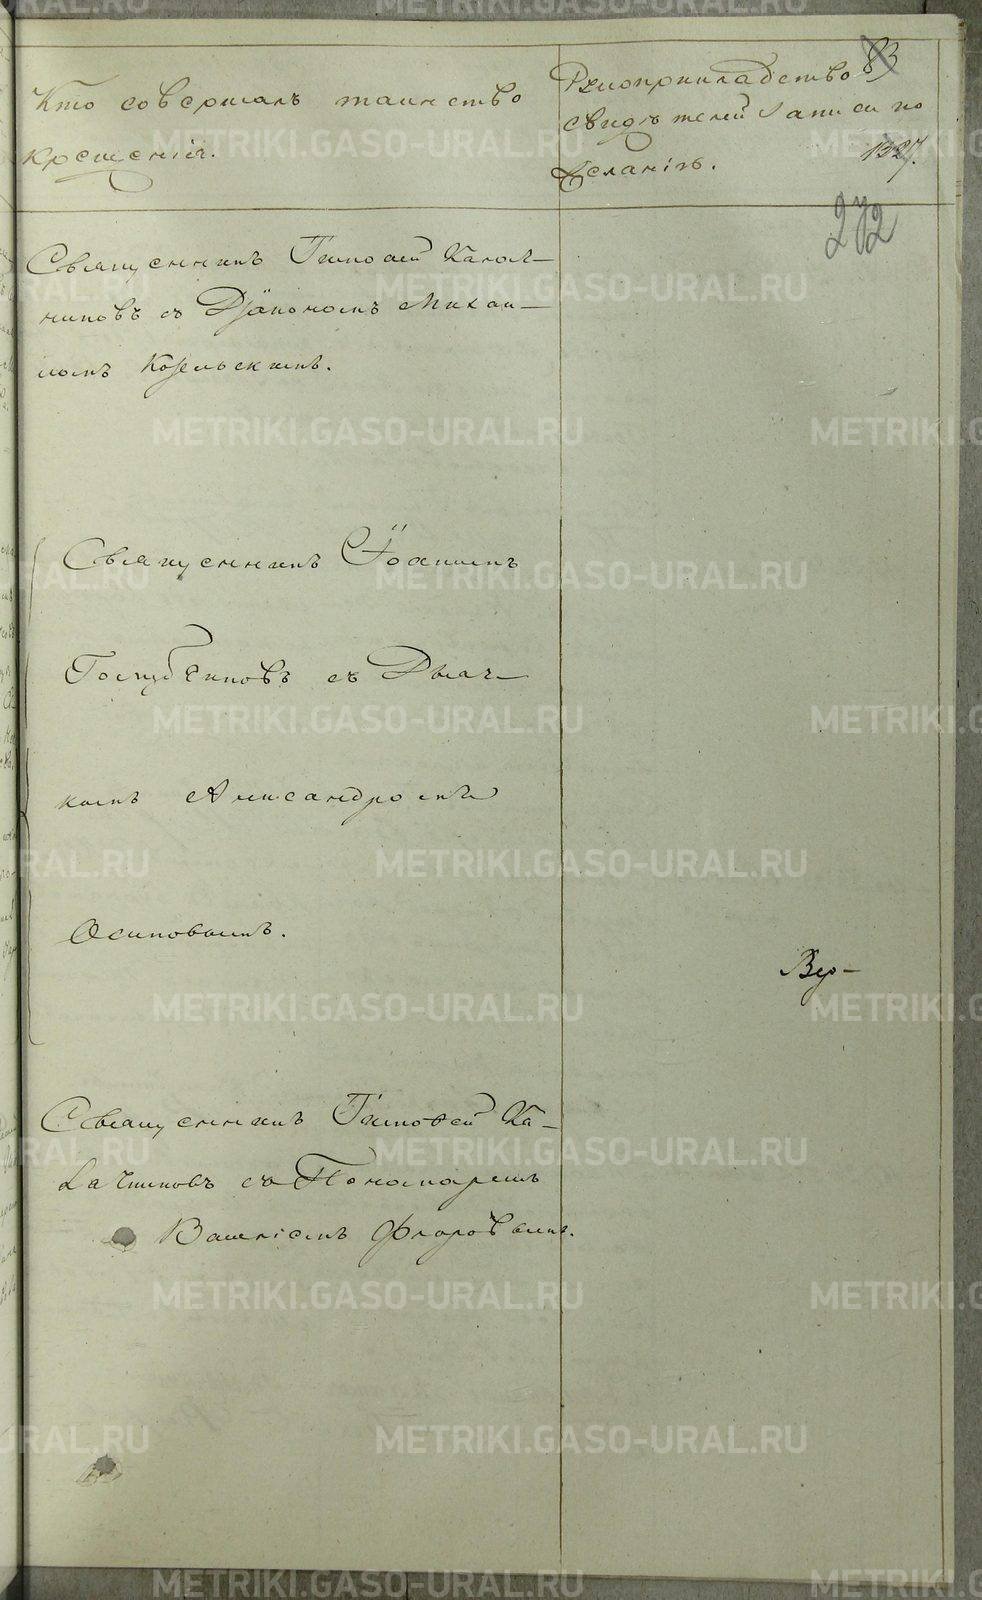 Кто совершалъ таинство
крещенія.
Рукоприкладство
свидѣтелей записи по
желанію.
83
1327.
272
Священникъ Тимофей Калач-
никовъ съ Діакономъ Михаи-
ломъ Козельскимъ.
Священникъ Іоаннъ
съ Дьяч-
комъ Александромъ
Осиповымъ.
Священникъ Тимофей Ка-
лачниковъ съ Пономаремъ
Флоровымъ.
METRIKI.GASO-URAL.RU